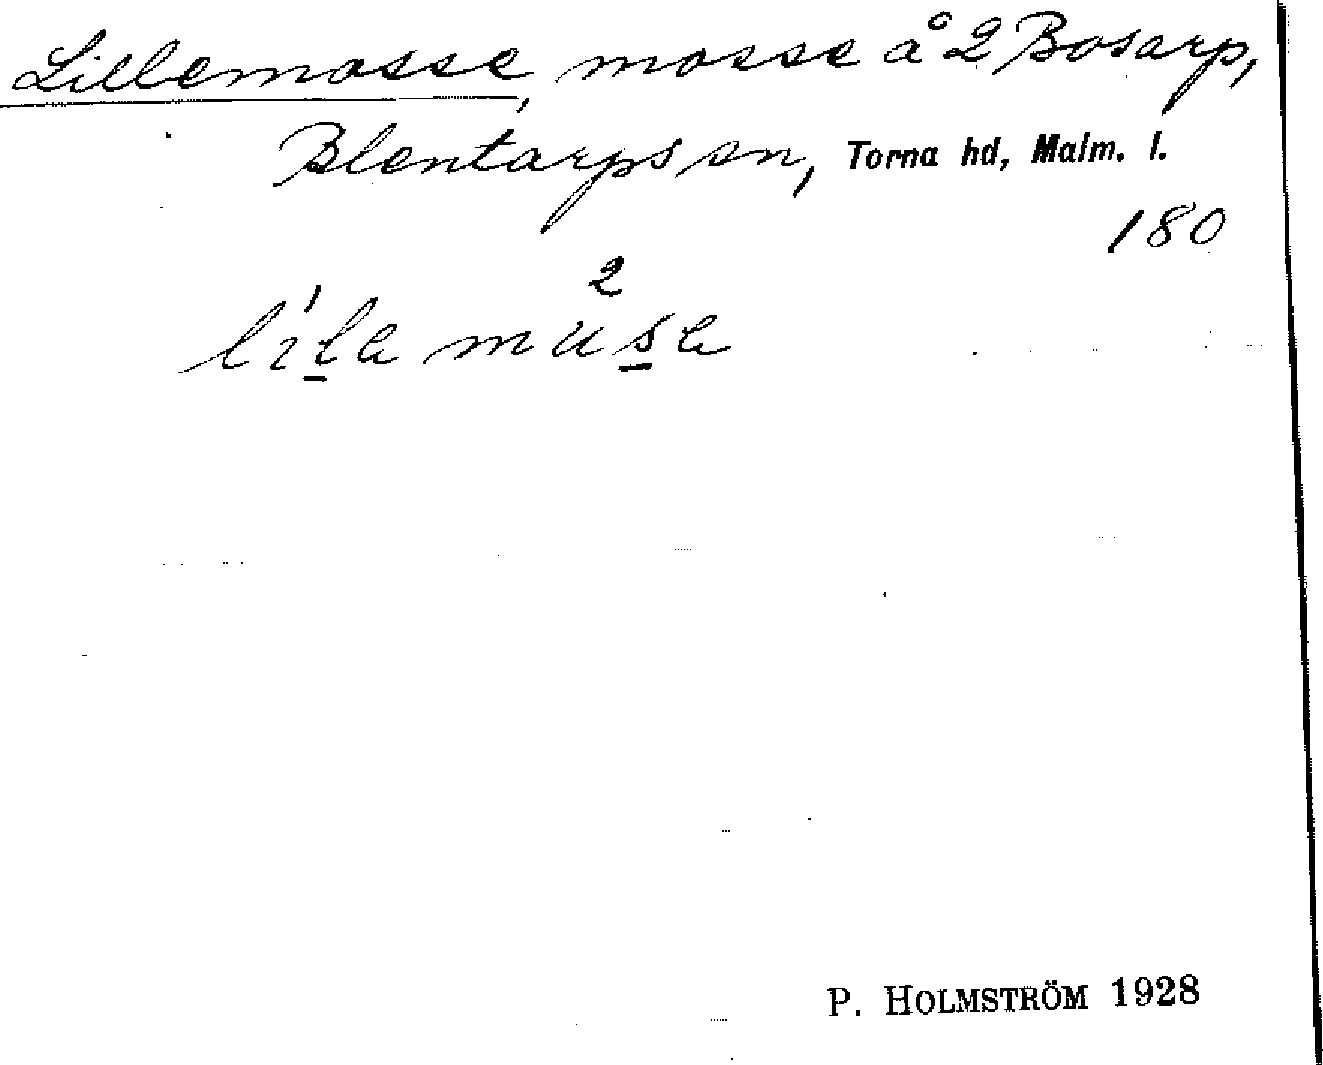 Lillemosse, mosse å 2 Bosarp,
Blentarps sn, Torna hd, Malm. l.
180
P. HOLMSTRÖM 1928